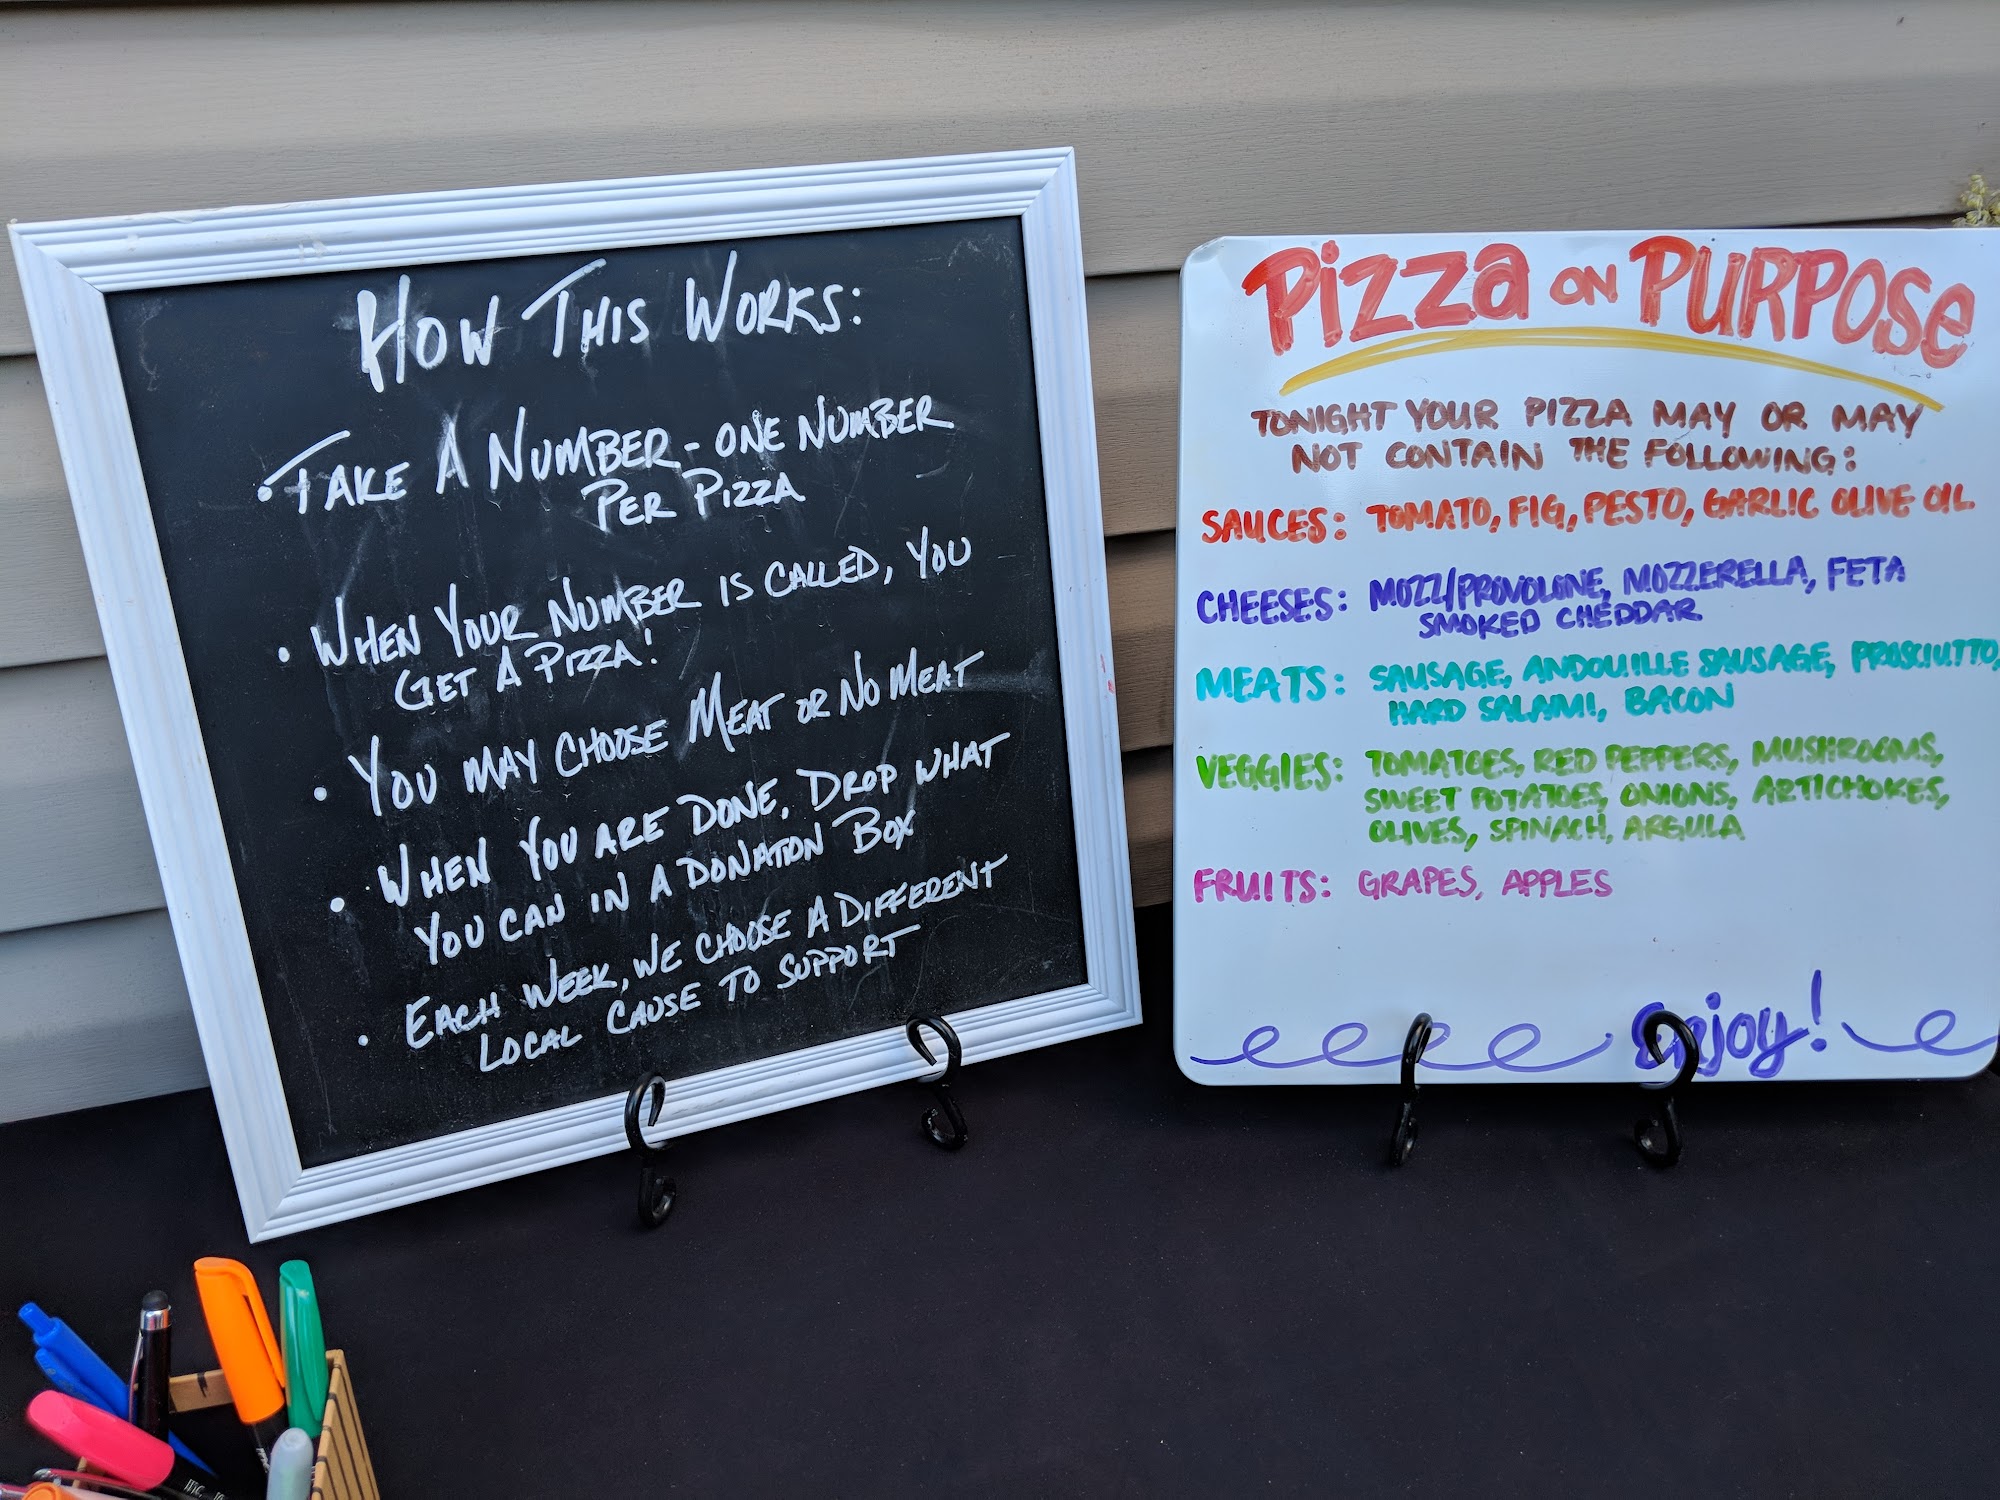 HOW THIS WORKS:
• TAKE A NUMBER - ONE NUMBER
PER PIZZA
• WHEN YOUR NUMBER IS CALLED, YOU
GET A PIZZA!
• YOU MAY CHOOSE MEAT OR NO MEAT
• WHEN YOU ARE DONE, DROP WHAT
YOU CAN IN A DONATION BOX
• EACH WEEK, WE CHOOSE A DIFFERENT
LOCAL CAUSE TO SUPPORT
Pizza ON PURPOSe
TONIGHT YOUR PIZZA MAY OR MAY
NOT CONTAIN THE FOLLOWING:
SAUCES: TOMATO, FIG, PESTO, GARLIC OLIVE OIL
CHEESES: MOZZ/PROVOLONE, MOZZERELLA, FETA
SMOKED CHEDDAR
MEATS: SAUSAGE, ANDOUILLE SAUSAGE, PROSCIUTTO,
HARD SALAMI, BACON
VEGGIES: TOMATOES, RED PEPPERS, MUSHROOMS,
SWEET POTATOES, ONIONS, ARTICHOKES,
OLIVES, SPINACH, ARGULA
FRUITS: GRAPES, APPLES
Enjoy!